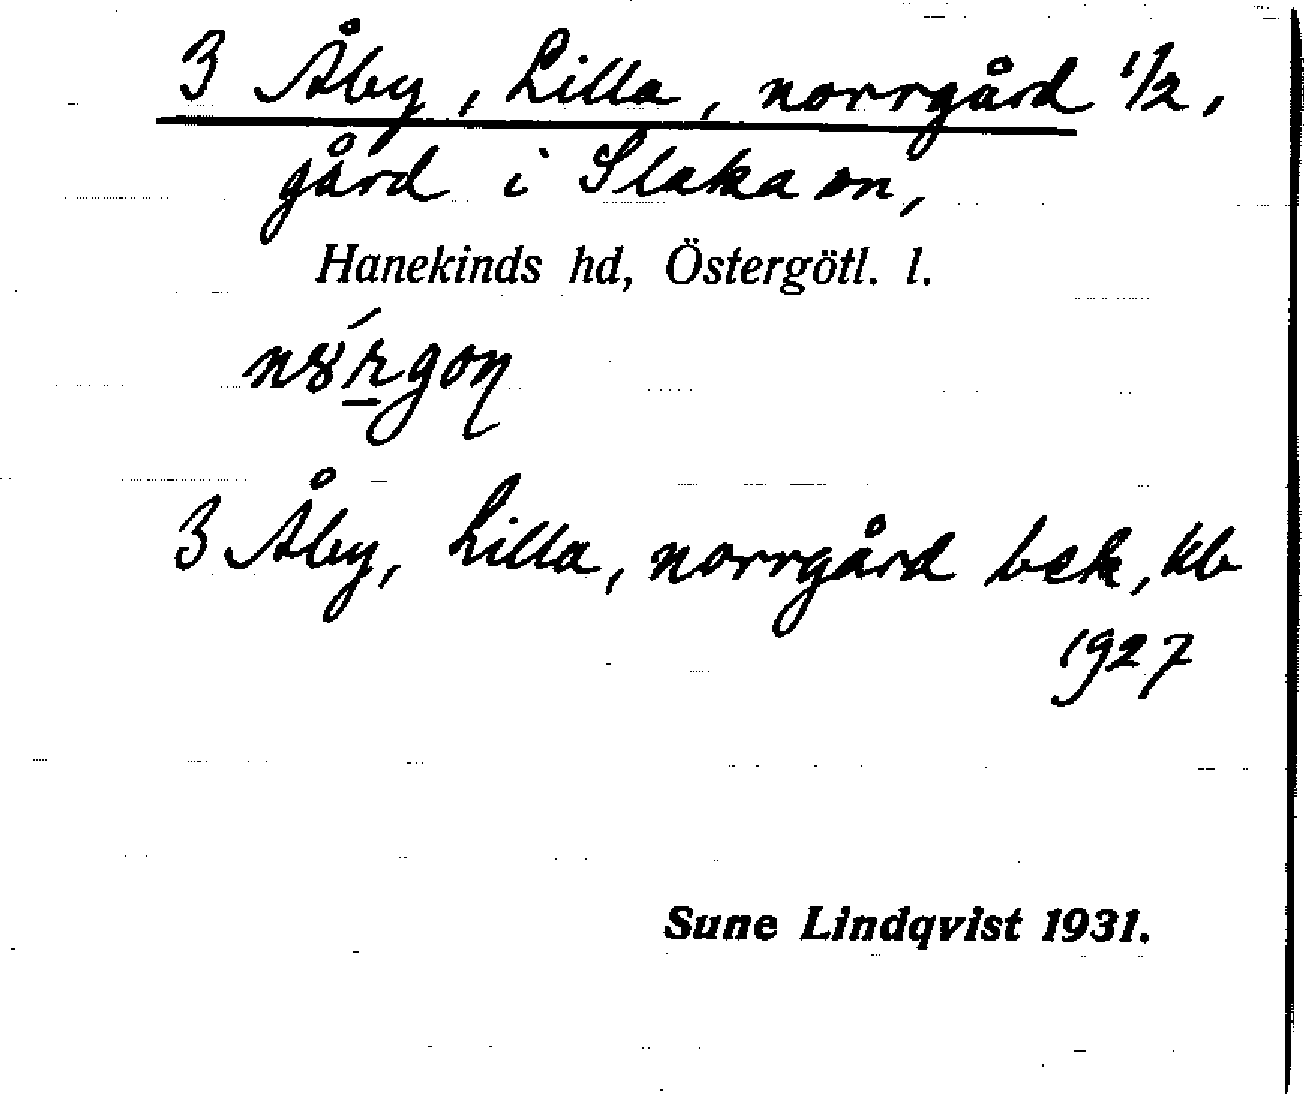 3 Åby, Lilla, norrgård 1/2,
gård i Slaka sn,
Hanekinds hd, Östergötl. l.
3 Åby, Lilla, norrgård bek, kb
1927
Sune Lindqvist 1931.